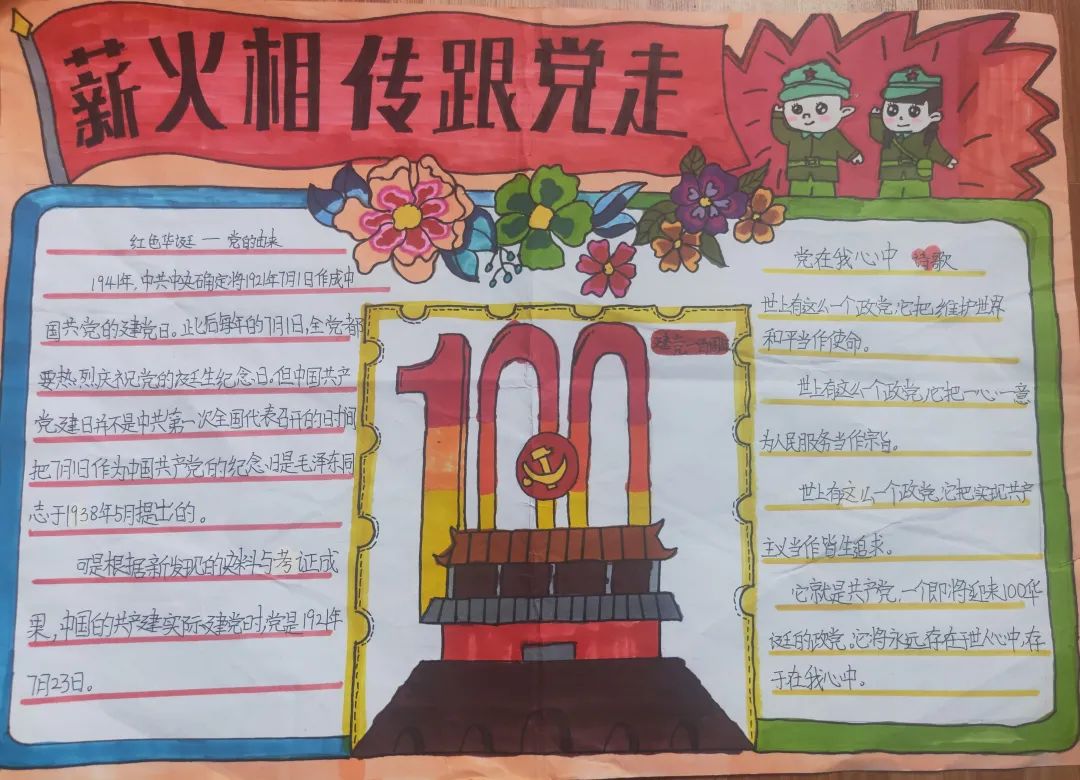 薪火相传跟党走
红色华诞 — 党的由来
1941年,中共中央确定将1921年7月1日作成中
国共党的建党日。此后每年的7月1日,全党都
要热烈庆祝党的诞生纪念日。但中国共产
党建日并不是中共第一次全国代表召开的日时间
把7月1日作为中国共产党的纪念日是毛泽东同
志于1938年5月提出的。
可是根据新发现的资料与考证成
果,中国的共产建实际建党时,党是1921年
7月23日。
100
建党一百周年
党在我心中 诗歌
世上有这么一个政党,它把维护世界
和平当作使命。
世上有这么一个政党,它把一心一意
为人民服务当作宗旨。
世上有这么一个政党,它把实现共产
主义当作皆生追求。
它就是共产党,一个即将迎来100华
诞的政党。它将永远存在于世人心中,存
于在我心中。